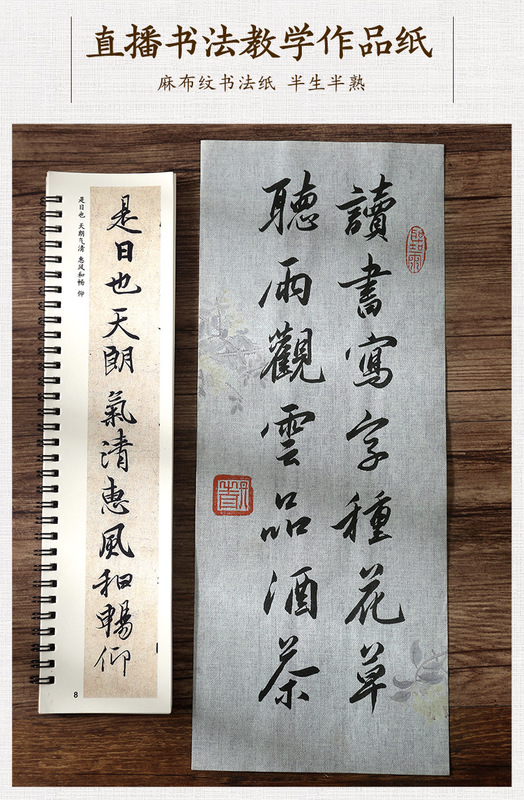 直播书法教学作品纸
麻布纹书法纸 半生半熟
是日也 天朗气清 惠风和畅 仰
是日也天朗氣清惠風和暢仰
8
讀書寫字種花草
聽雨觀雲品酒茶